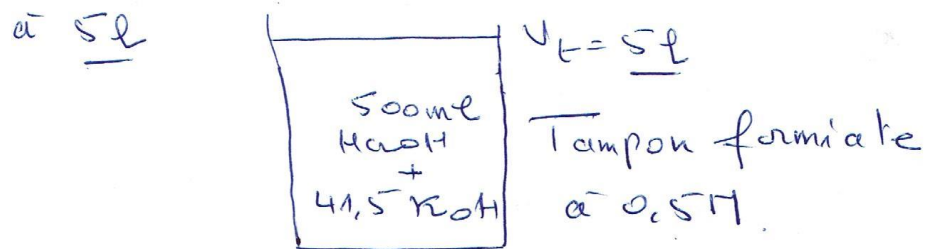 à 5l
Vt = 5l
500ml
HCOOH
+
41,5 KOH
Tampon formiate
à 0,5M